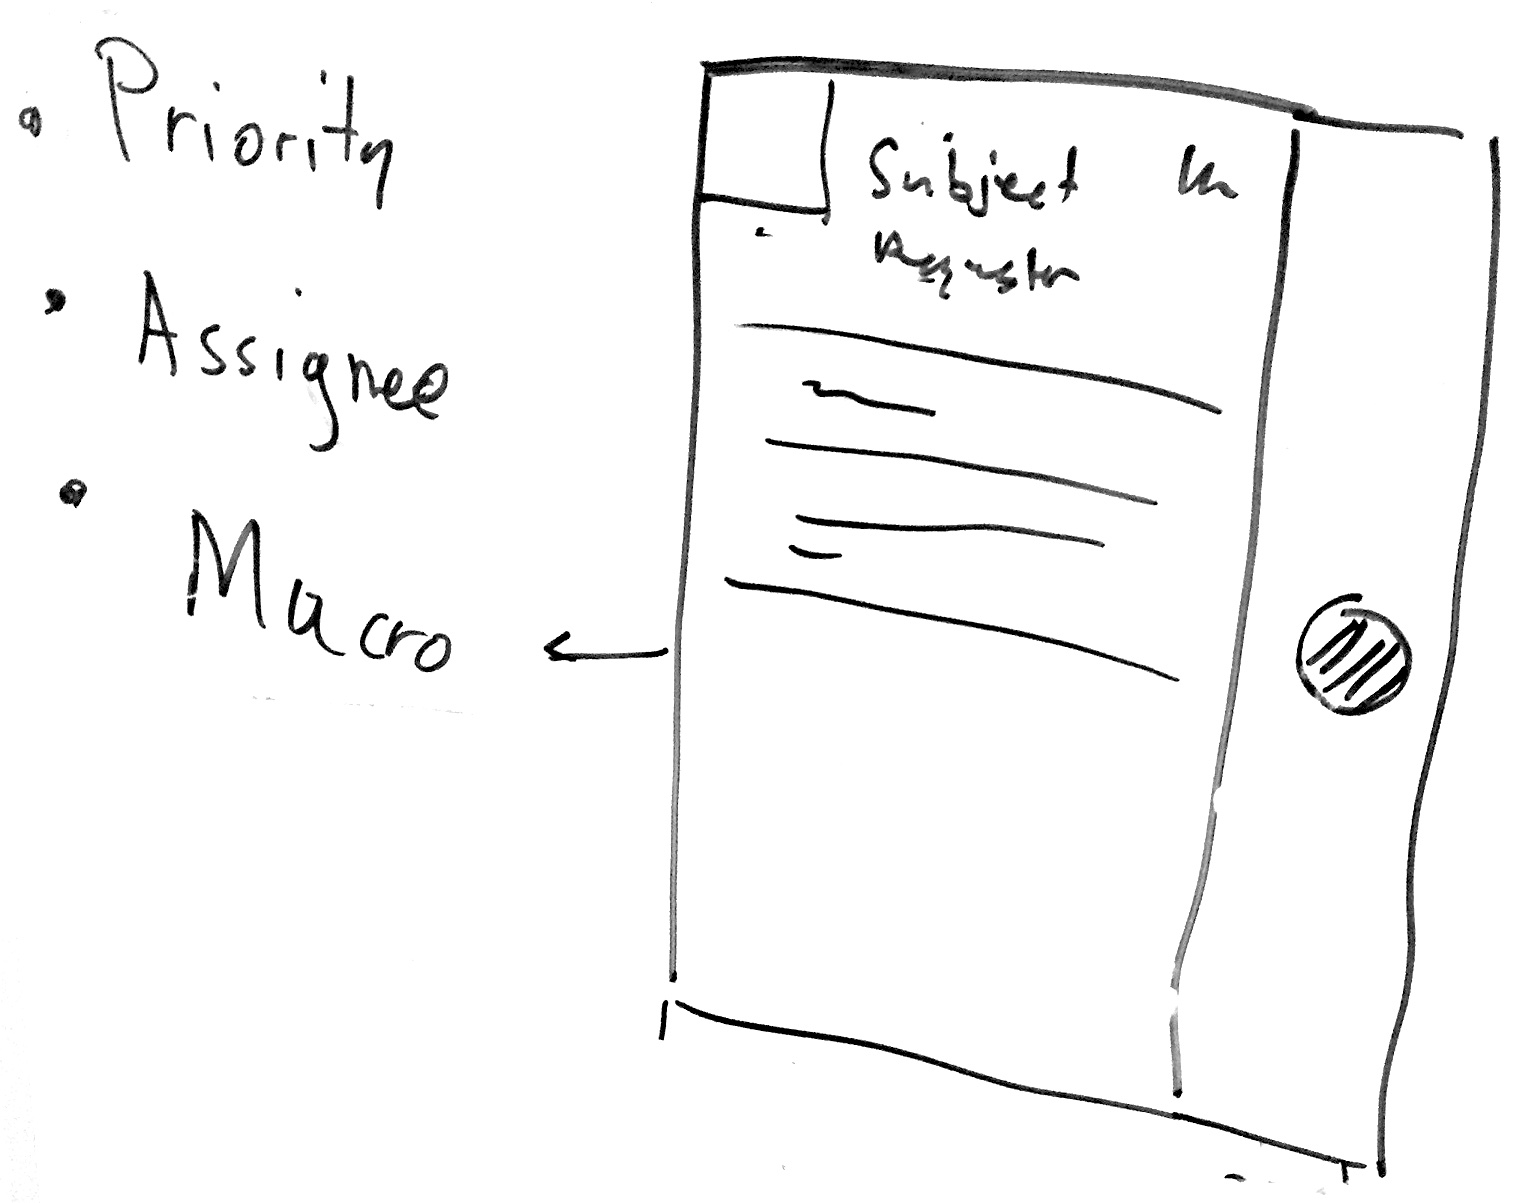 Priority
Assignee
Macro
Subject
Requester